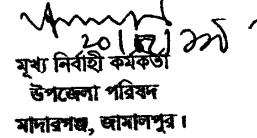 মূখ্য নির্বাহী কর্মকর্তা
উপজেলা পরিষদ
মাদারগঞ্জ, জামালপুর।